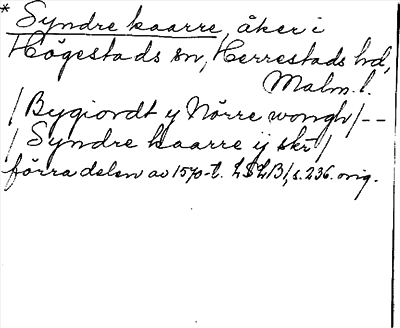 * Syndre kaarre, åker i
Högestads sn, Herrestads hd,
Malm. l.
/ Bygiordt y Nörre wongh / --
/ Syndre kaarre ij skr /
förra delen av 1570-t. LSLB1, s. 236. orig.